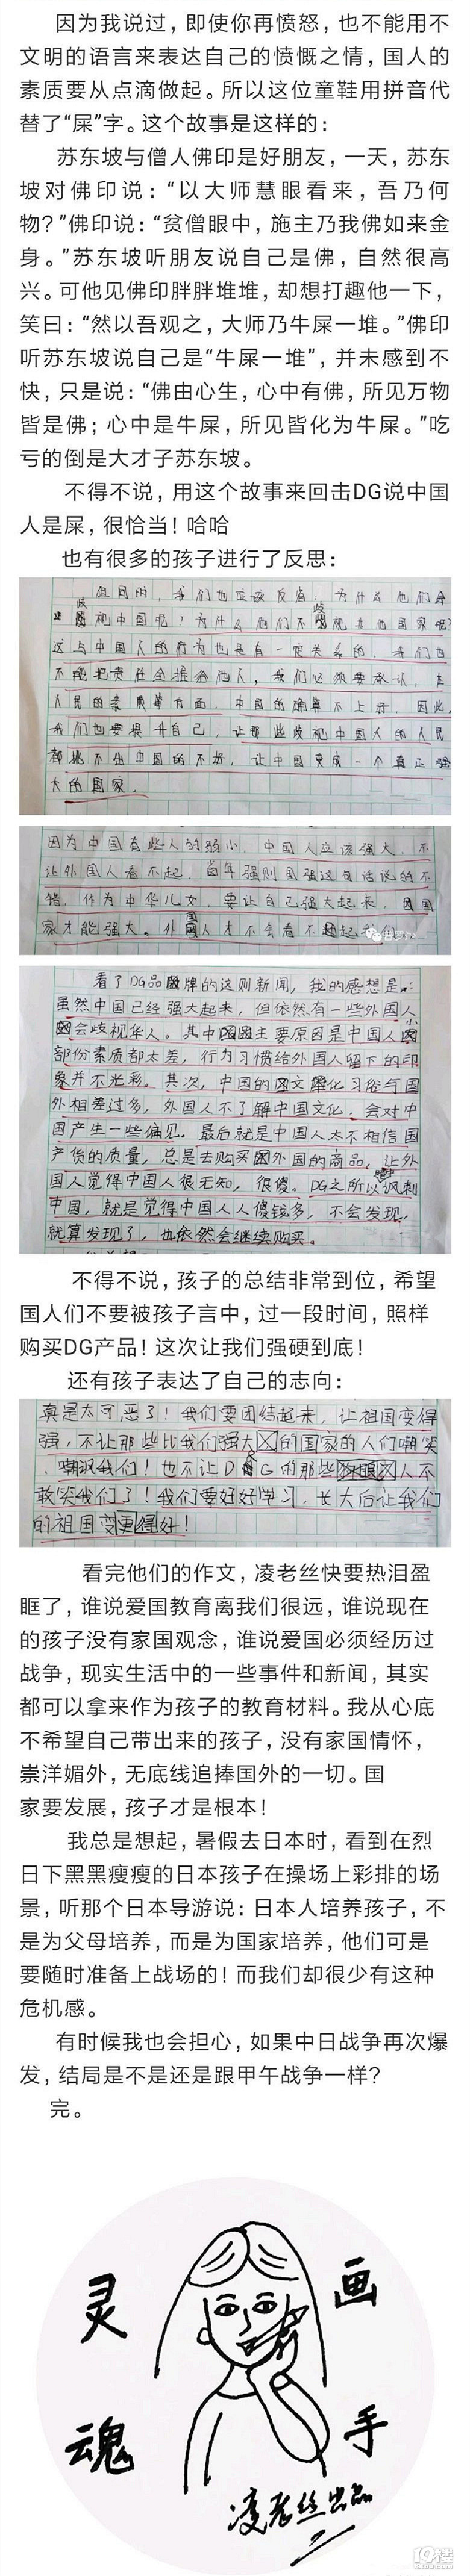 因为我说过，即使你再愤怒，也不能用不
文明的语言来表达自己的愤慨之情，国人的
素质要从点滴做起。所以这位童鞋用拼音代
替了“屎”字。这个故事是这样的：
苏东坡与僧人佛印是好朋友，一天，苏东
坡对佛印说：“以大师慧眼看来，吾乃何
物？”佛印说：“贫僧眼中，施主乃我佛如来金
身。”苏东坡听朋友说自己是佛，自然很高
兴。可他见佛印胖胖堆堆，却想打趣他一下，
笑曰：“然以吾观之，大师乃牛屎一堆。”佛印
听苏东坡说自己是“牛屎一堆”，并未感到不
快，只是说：“佛由心生，心中有佛，所见万物
皆是佛；心中是牛屎，所见皆化为牛屎。”吃
亏的倒是大才子苏东坡。
不得不说，用这个故事来回击DG说中国
人是屎，很恰当！哈哈
也有很多的孩子进行了反思：
但同时，我们也应该反省，为什么他们会
歧视中国呢？为什么他们不歧视其他国家呢？
这与中国人的行为也是有一定关系的，我们也
不能把责任全推给他人，我们必须要承认，在
人民的素质等方面，中国的确算不上好，因此，
我们也要提升自己，让那些歧视中国人的人民
都挑不出中国的不好，让中国变成一个真正强
大的国家。
因为中国有些人的弱小，中国人应该强大，不
让外国人看不起，少年强则国强这句话说的不
错，作为中华儿女，要让自己强大起来，国
家才能强大。外国人才不会看不起
看了DG品牌的这则新闻，我的感想是：
虽然中国已经强大起来，但依然有一些外国人
会歧视华人。其中主要原因是中国人小
部份素质都太差，行为习惯给外国人留下的印
象并不光彩。其次，中国的文化习俗与国
外相差过多，外国人不了解中国文化，会对中
国产生一些偏见。最后就是中国人太不相信国
产货的质量，总是去购买外国的商品，让外
国人觉得中国人很无知，很傻。DG之所以讽刺
中国，就是觉得中国人人傻钱多，不会发现，
就算发现了，也依然会继续购买。
不得不说，孩子的总结非常到位，希望
国人们不要被孩子言中，过一段时间，照样
购买DG产品！这次让我们强硬到底！
还有孩子表达了自己的志向：
真是太可恶了！我们要团结起来，让祖国变得
强，不让那些比我们强大的国家的人们嘲笑
、嘲讽我们！也不让D&G的那些人不
敢笑我们了！我们要好好学习，长大后让我们
的祖国变更好！
看完他们的作文，凌老丝快要热泪盈
眶了，谁说爱国教育离我们很远，谁说现在
的孩子没有家国观念，谁说爱国必须经历过
战争，现实生活中的一些事件和新闻，其实
都可以拿来作为孩子的教育材料。我从心底
不希望自己带出来的孩子，没有家国情怀，
崇洋媚外，无底线追捧国外的一切。国
家要发展，孩子才是根本！
我总是想起，暑假去日本时，看到在烈
日下黑黑瘦瘦的日本孩子在操场上彩排的场
景，听那个日本导游说：日本人培养孩子，不
是为父母培养，而是为国家培养，他们可是
要随时准备上战场的！而我们却很少有这种
危机感。
有时候我也会担心，如果中日战争再次爆
发，结局是不是还是跟甲午战争一样？
完。
灵魂
画手
凌老丝出品
19楼